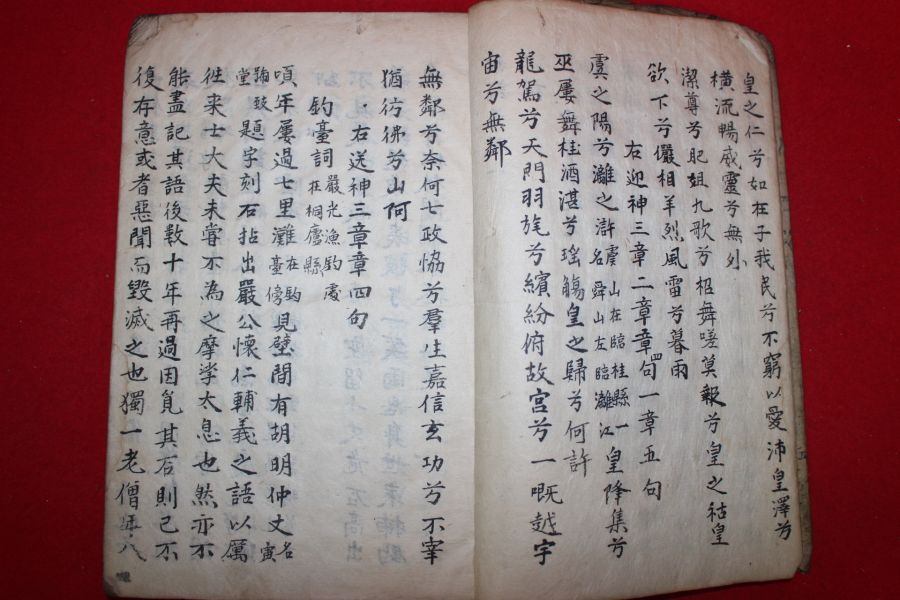 皇之仁兮如在子我民兮不窮以愛沛皇澤兮
橫流暢威靈兮無外
潔尊兮肥俎九歌兮招舞嗟莫報兮皇之祜皇
欲下兮儼相羊烈風雷兮暮雨
右迎神三章二章章四句一章五句
虞之陽兮灕之滸虞山在臨桂縣一名舜山左臨灕江皇降集兮
巫屢舞桂酒湛兮瑤觴皇之歸兮何許
龍駕兮天門羽旄兮繽紛俯故宮兮一嘅越宇
宙兮無鄰
無鄰兮奈何七政協兮羣生嘉信玄功兮不宰
猶彷彿兮山何
右送神三章章四句
釣臺詞嚴光漁釣處在桐廬縣
頃年屢過七里灘在釣臺傍見壁間有胡明仲丈名寅
號致堂題字刻石拈出嚴公懷仁輔義之語以厲
往來士大夫未嘗不為之摩挲太息也然亦不
能盡記其語後數十年再過因覓其石則已不
復存意或者惡聞而毀滅之也獨一老僧年八